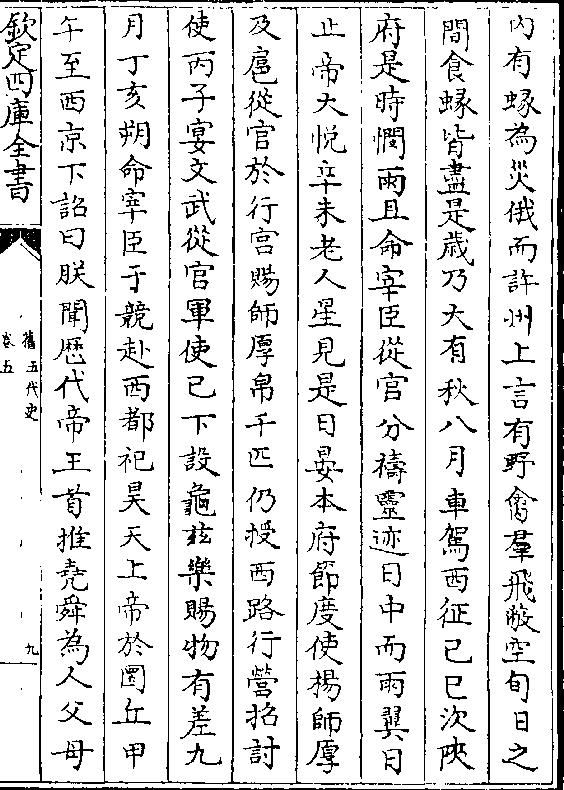 內有蝝為災俄而許州上言有野禽羣飛蔽空旬日之
間食蝝皆盡是歲乃大有秋八月車駕西征己巳次陜
府是時憫雨且命宰臣從官分禱靈迹日中而雨翼日
止帝大悅辛未老人星見是日晏本府節度使楊師厚
及扈從官於行宮賜師厚帛千匹仍授西路行營招討
使丙子宴文武從官軍使已下設龜兹樂賜物有差九
月丁亥朔命宰臣于競赴西都祀昊天上帝於圜丘甲
午至西京下詔曰朕聞歷代帝王首推堯舜為人父母
欽定四庫全書
舊五代史
卷五
九